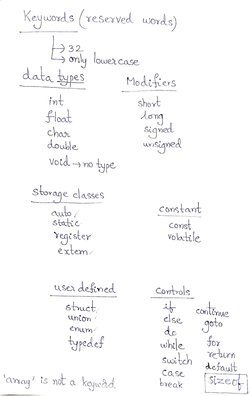 Keywords (reserved words)
→ 32
→ only lowercase
data types
int
float
char
double
void → no type
Modifiers
short
long
signed
unsigned
storage classes
auto
static
register
extern
constant
const
volatile
user defined
struct
union
enum
typedef
controls
if
else
do
while
switch
case
break
continue
goto
for
return
default
sizeof
'array' is not a keyword.